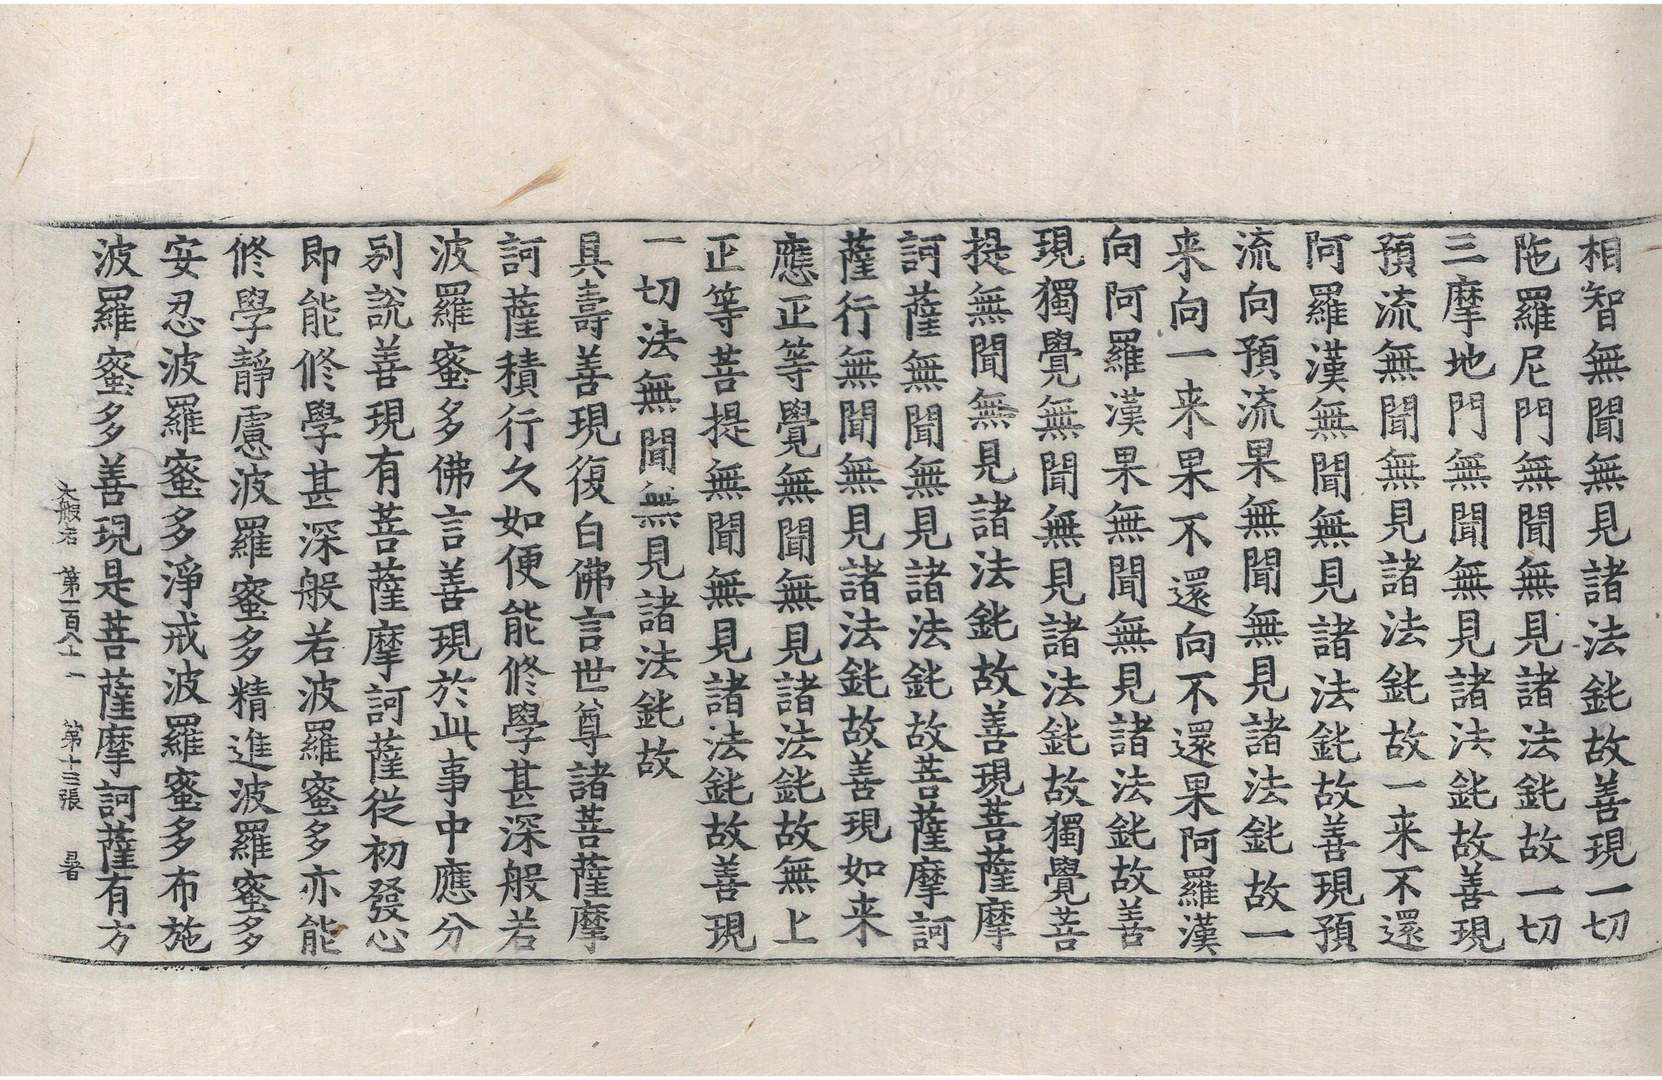 相智無聞無見諸法鈍故善現一切
陁羅尼門無聞無見諸法鈍故一切
三摩地門無聞無見諸法鈍故善現
預流無聞無見諸法鈍故一来不還
阿羅漢無聞無見諸法鈍故善現預
流向預流果無聞無見諸法鈍故一
来向一来果不還向不還果阿羅漢
向阿羅漢果無聞無見諸法鈍故善
現獨覺無聞無見諸法鈍故獨覺菩
提無聞無見諸法鈍故善現菩薩摩
訶薩無聞無見諸法鈍故菩薩摩訶
薩行無聞無見諸法鈍故善現如来
應正等覺無聞無見諸法鈍故無上
正等菩提無聞無見諸法鈍故善現
一切法無聞無見諸法鈍故
具壽善現復白佛言世尊諸菩薩摩
訶薩積行久如便能修學甚深般若
波羅蜜多佛言善現於此事中應分
別說善現有菩薩摩訶薩從初發心
即能修學甚深般若波羅蜜多亦能
修學靜慮波羅蜜多精進波羅蜜多
安忍波羅蜜多淨戒波羅蜜多布施
波羅蜜多善現是菩薩摩訶薩有方
大般若 第一百八十一 第十三張 暑